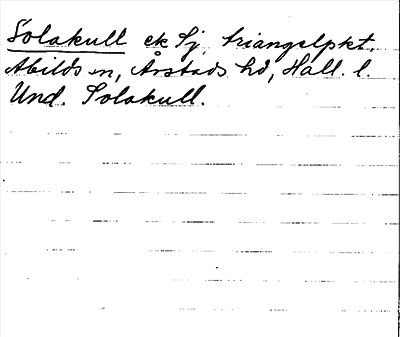 Solakull ek Sj, triangelpkt.
Abilds sn, Årstads hd, Hall. l.
Und. Solakull.